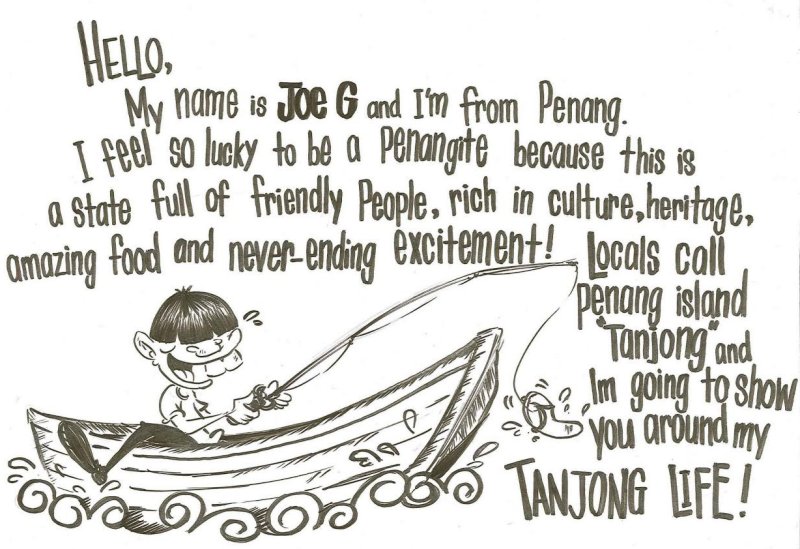 HELLO,
My name is JOE G and I'm from Penang.
I feel so lucky to be a Penangite because this is
a state full of friendly People, rich in culture, heritage,
amazing food and never-ending excitement!
Locals call
penang island
"Tanjong" and
Im going to show
you around my
TANJONG LIFE!